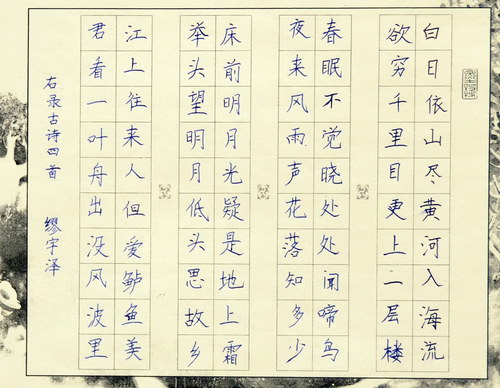 白日依山尽黄河入海流
欲穷千里目更上二层楼
春眠不觉晓处处闻啼鸟
夜来风雨声花落知多少
床前明月光疑是地上霜
举头望明月低头思故乡
江上往来人但爱鲈鱼美
君看一叶舟出没风波里
右录古诗四首 缪宇泽